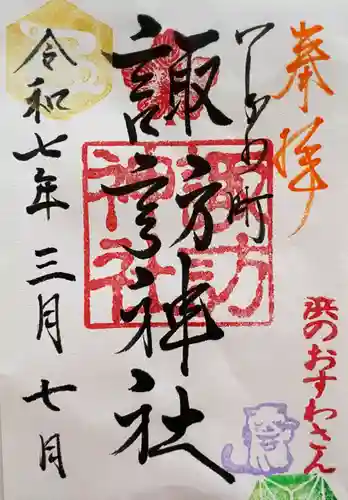 奉拝
浜のおすわさん
町
諏訪神社
諏訪
神社
令和七年三月七日